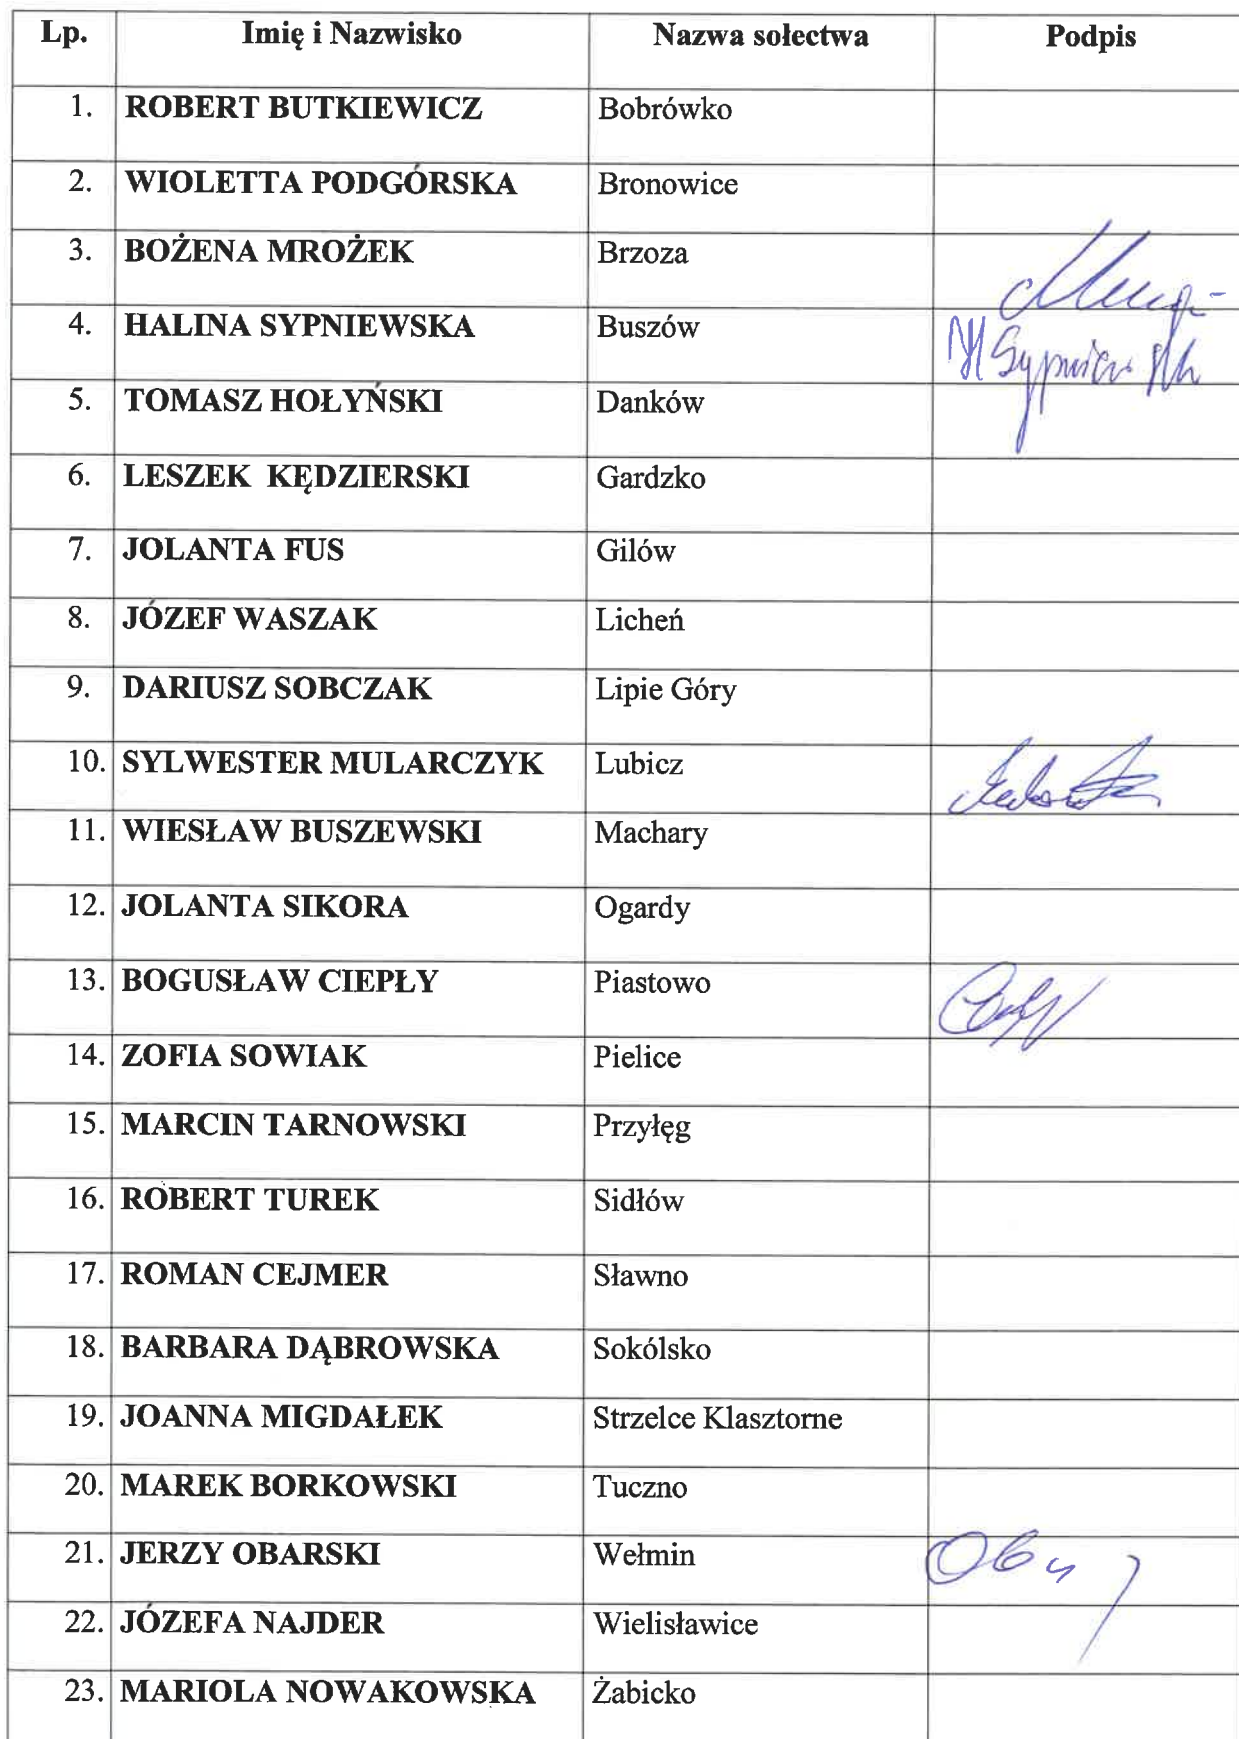 Lp. Imię i Nazwisko Nazwa sołectwa Podpis
1. ROBERT BUTKIEWICZ Bobrówko
2. WIOLETTA PODGÓRSKA Bronowice
3. BOŻENA MROŻEK Brzoza
4. HALINA SYPNIEWSKA Buszów
5. TOMASZ HOŁYŃSKI Danków
6. LESZEK KĘDZIERSKI Gardzko
7. JOLANTA FUS Gilów
8. JÓZEF WASZAK Licheń
9. DARIUSZ SOBCZAK Lipie Góry
10. SYLWESTER MULARCZYK Lubicz
11. WIESŁAW BUSZEWSKI Machary
12. JOLANTA SIKORA Ogardy
13. BOGUSŁAW CIEPŁY Piastowo
14. ZOFIA SOWIAK Pielice
15. MARCIN TARNOWSKI Przyłęg
16. ROBERT TUREK Sidłów
17. ROMAN CEJMER Sławno
18. BARBARA DĄBROWSKA Sokólsko
19. JOANNA MIGDAŁEK Strzelce Klasztorne
20. MAREK BORKOWSKI Tuczno
21. JERZY OBARSKI Wełmin
22. JÓZEFA NAJDER Wielisławice
23. MARIOLA NOWAKOWSKA Żabicko